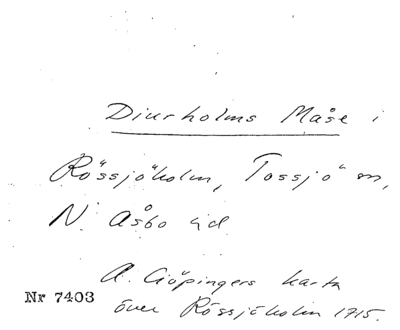 Diurholms Måse i
Rössjöholm, Tossjö sn,
N. Åsbo hd
A. Giöpingers karta
Nr 7403
över Rössjöholm 1715.